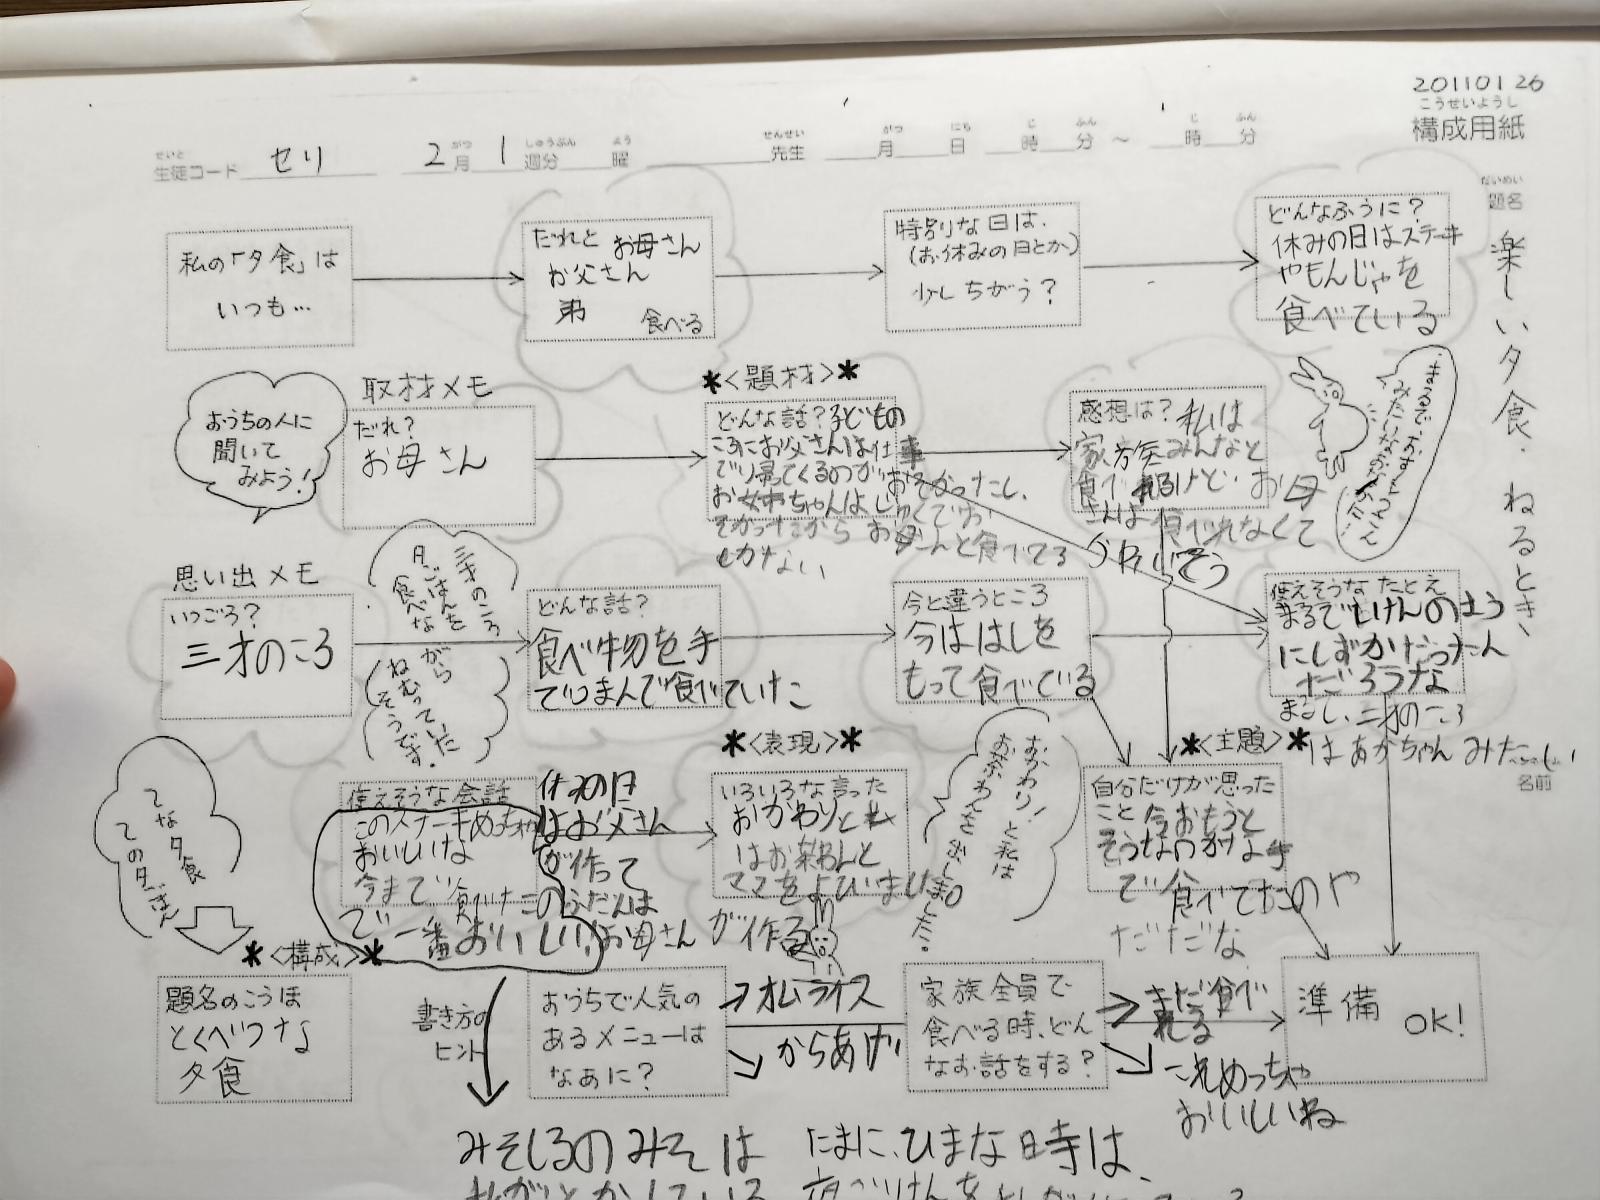 20110126
こうせいようし
構成用紙
せいと
生徒コード セリ
がつ しゅうぶん よう
2月 1週分 曜
せんせい
先生
がつ にち じ ふん じ ふん
月 日 時 分 ～ 時 分
だいめい
題名
楽しい夕食.ねるとき、
名前
私の「夕食」は
いつも…
だれと お母さん
お父さん
弟
食べる
特別な日は、
(お休みの日とか)
少しちがう?
どんなふうに?
休みの日はステーキ
やもんじゃを
食べている
おうちの人に
聞いて
みよう!
取材メモ
だれ?
お母さん
*<題材>*
どんな話?子どもの
ころにお父さんは仕事
で帰ってくるのがおそかったし、
お姉ちゃんは
そかったから お母さんと食べてる
しかない
感想は?私は
家族みんなと
食べれるけど、お母
さんは食べれなくて
思い出メモ
いつごろ?
三才のころ
三才のころ
夕ごはんを
食べな
がら
ねむっていた
そうです。
どんな話?
食べ物を手
でつまんで食べていた
今と違うところ
今ははしを
もって食べている
使えそうなたとえ
まるで
にしずかだったん
だろうな
まるで、二才のころ
はあかちゃんみたい
てな夕食
ての夕ごはん
使えそうな会話
このステーキめっちゃ
おいしいな
今まで食べたの
で一番おいしい!
休みの日
はお父さん
が作って
ふだんは
お母さんが作る
*<表現>*
いろいろな言った
おかわりと私
はお茶わんと
ママをよびました
おかわり!と私は
おちゃわんを出しました。
*<主題>*
自分だけが思った
こと今おもうと
そうなのかなよ手
で食べてたのや
だだだな
*<構成>*
題名のこうほ
とくべつな
夕食
書き方の
ヒント
おうちで人気の
あるメニューは
なあに?
オムライス
からあげ
家族全員で
食べる時、どん
なお話をする?
まだ食べ
れる
これめっちゃ
おいしいね
準備
OK!
みそしるのみそは
たまに、ひまな時は、